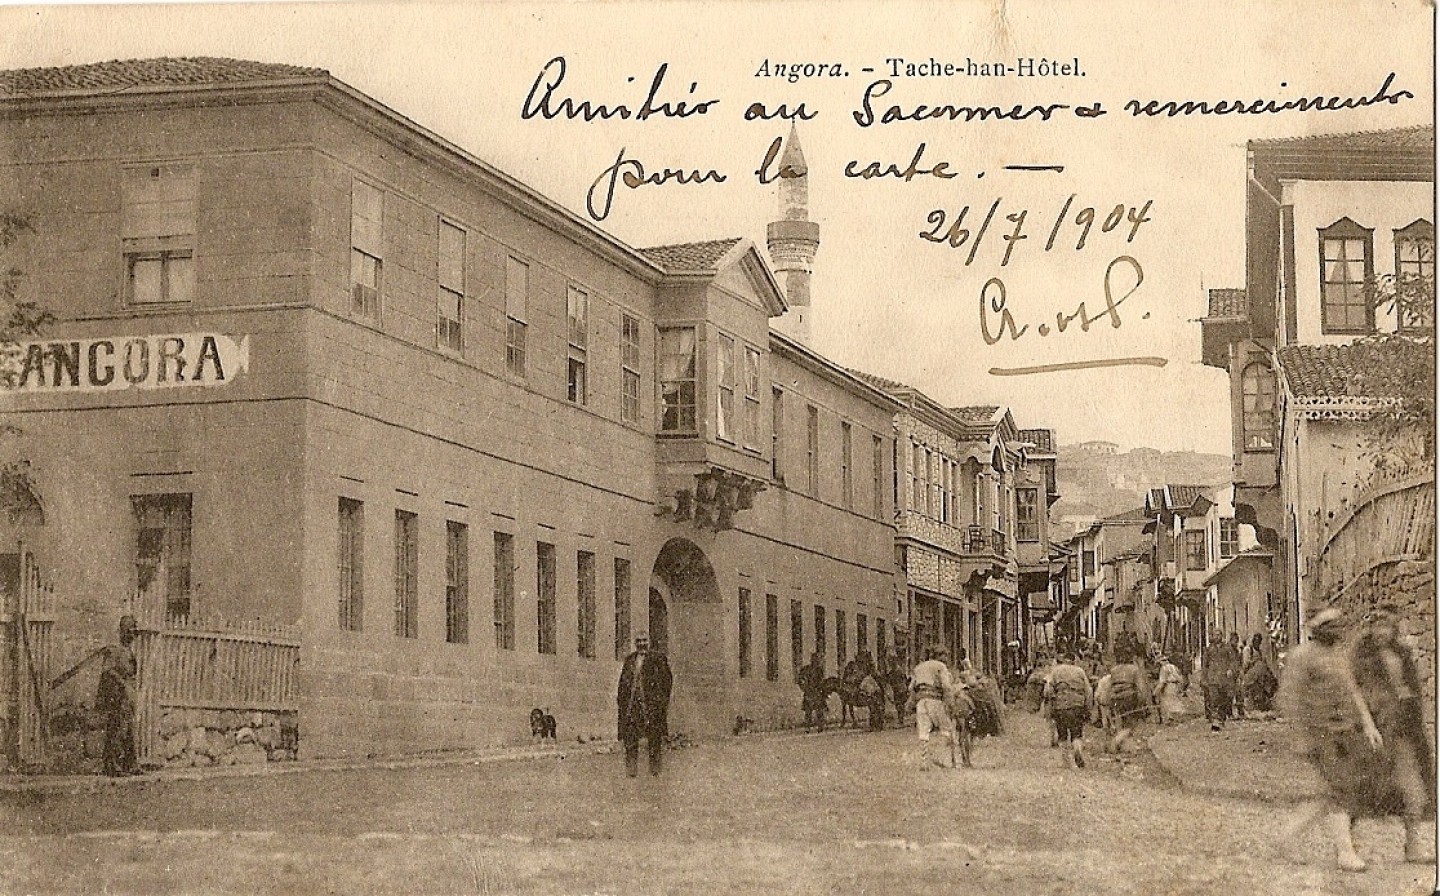 Angora. - Tache-han-Hôtel.
Amitiés au & remerciments
pour la carte. —
26/7/904
ANGORA